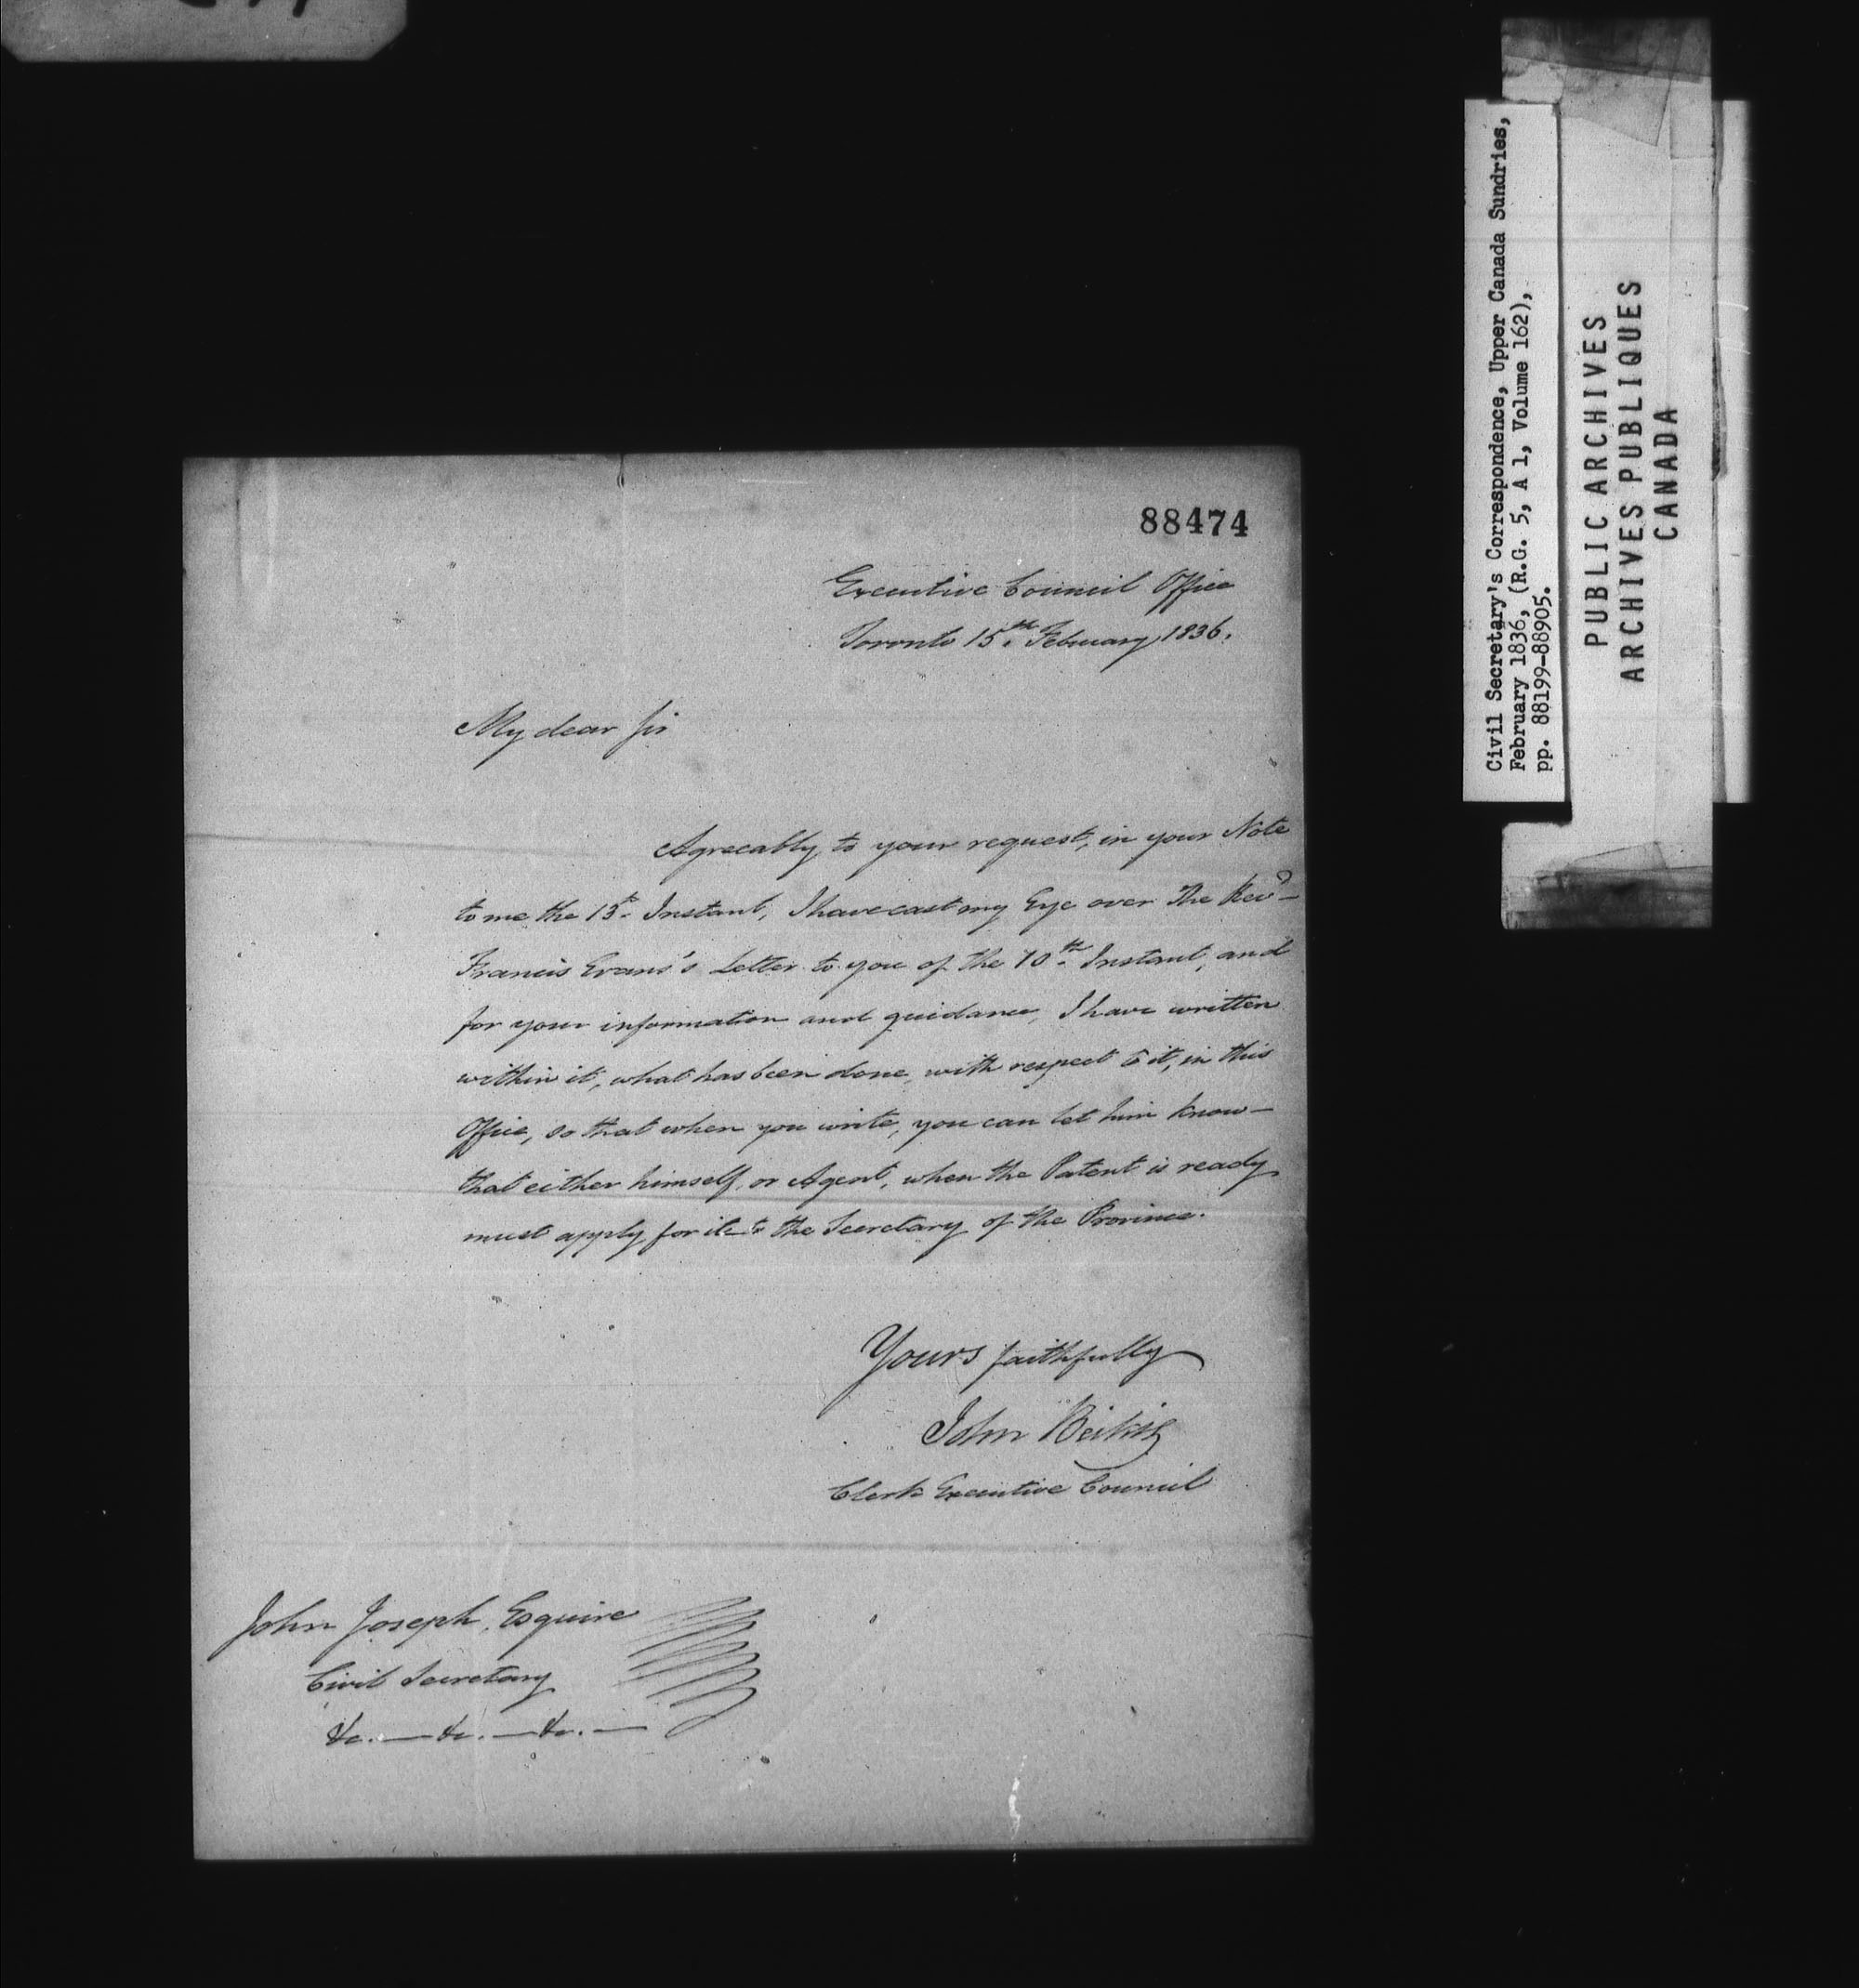 88474
Executive Council Office
Toronto 15th February 1836.
My dear Sir
Agreeably to your request, in your Note
to me the 15th Instant, I have cast my Eye over The Revd
Francis Evans's Letter to you of the 10th Instant, and
for your information and guidance, I have written
within it, what has been done, with respect to it, in this
Office, so that when you write, you can let him know—
that either himself, or Agent, when the Patent is ready
must apply for it to the Secretary of the Province.
Yours faithfully
John Beikie
Clerk Executive Council
John Joseph, Esquire
Civil Secretary
&c. — &c. — &c. —
Civil Secretary's Correspondence, Upper Canada Sundries,
February 1836, (R.G. 5, A 1, Volume 162),
pp. 88199-88905.
PUBLIC ARCHIVES
ARCHIVES PUBLIQUES
CANADA